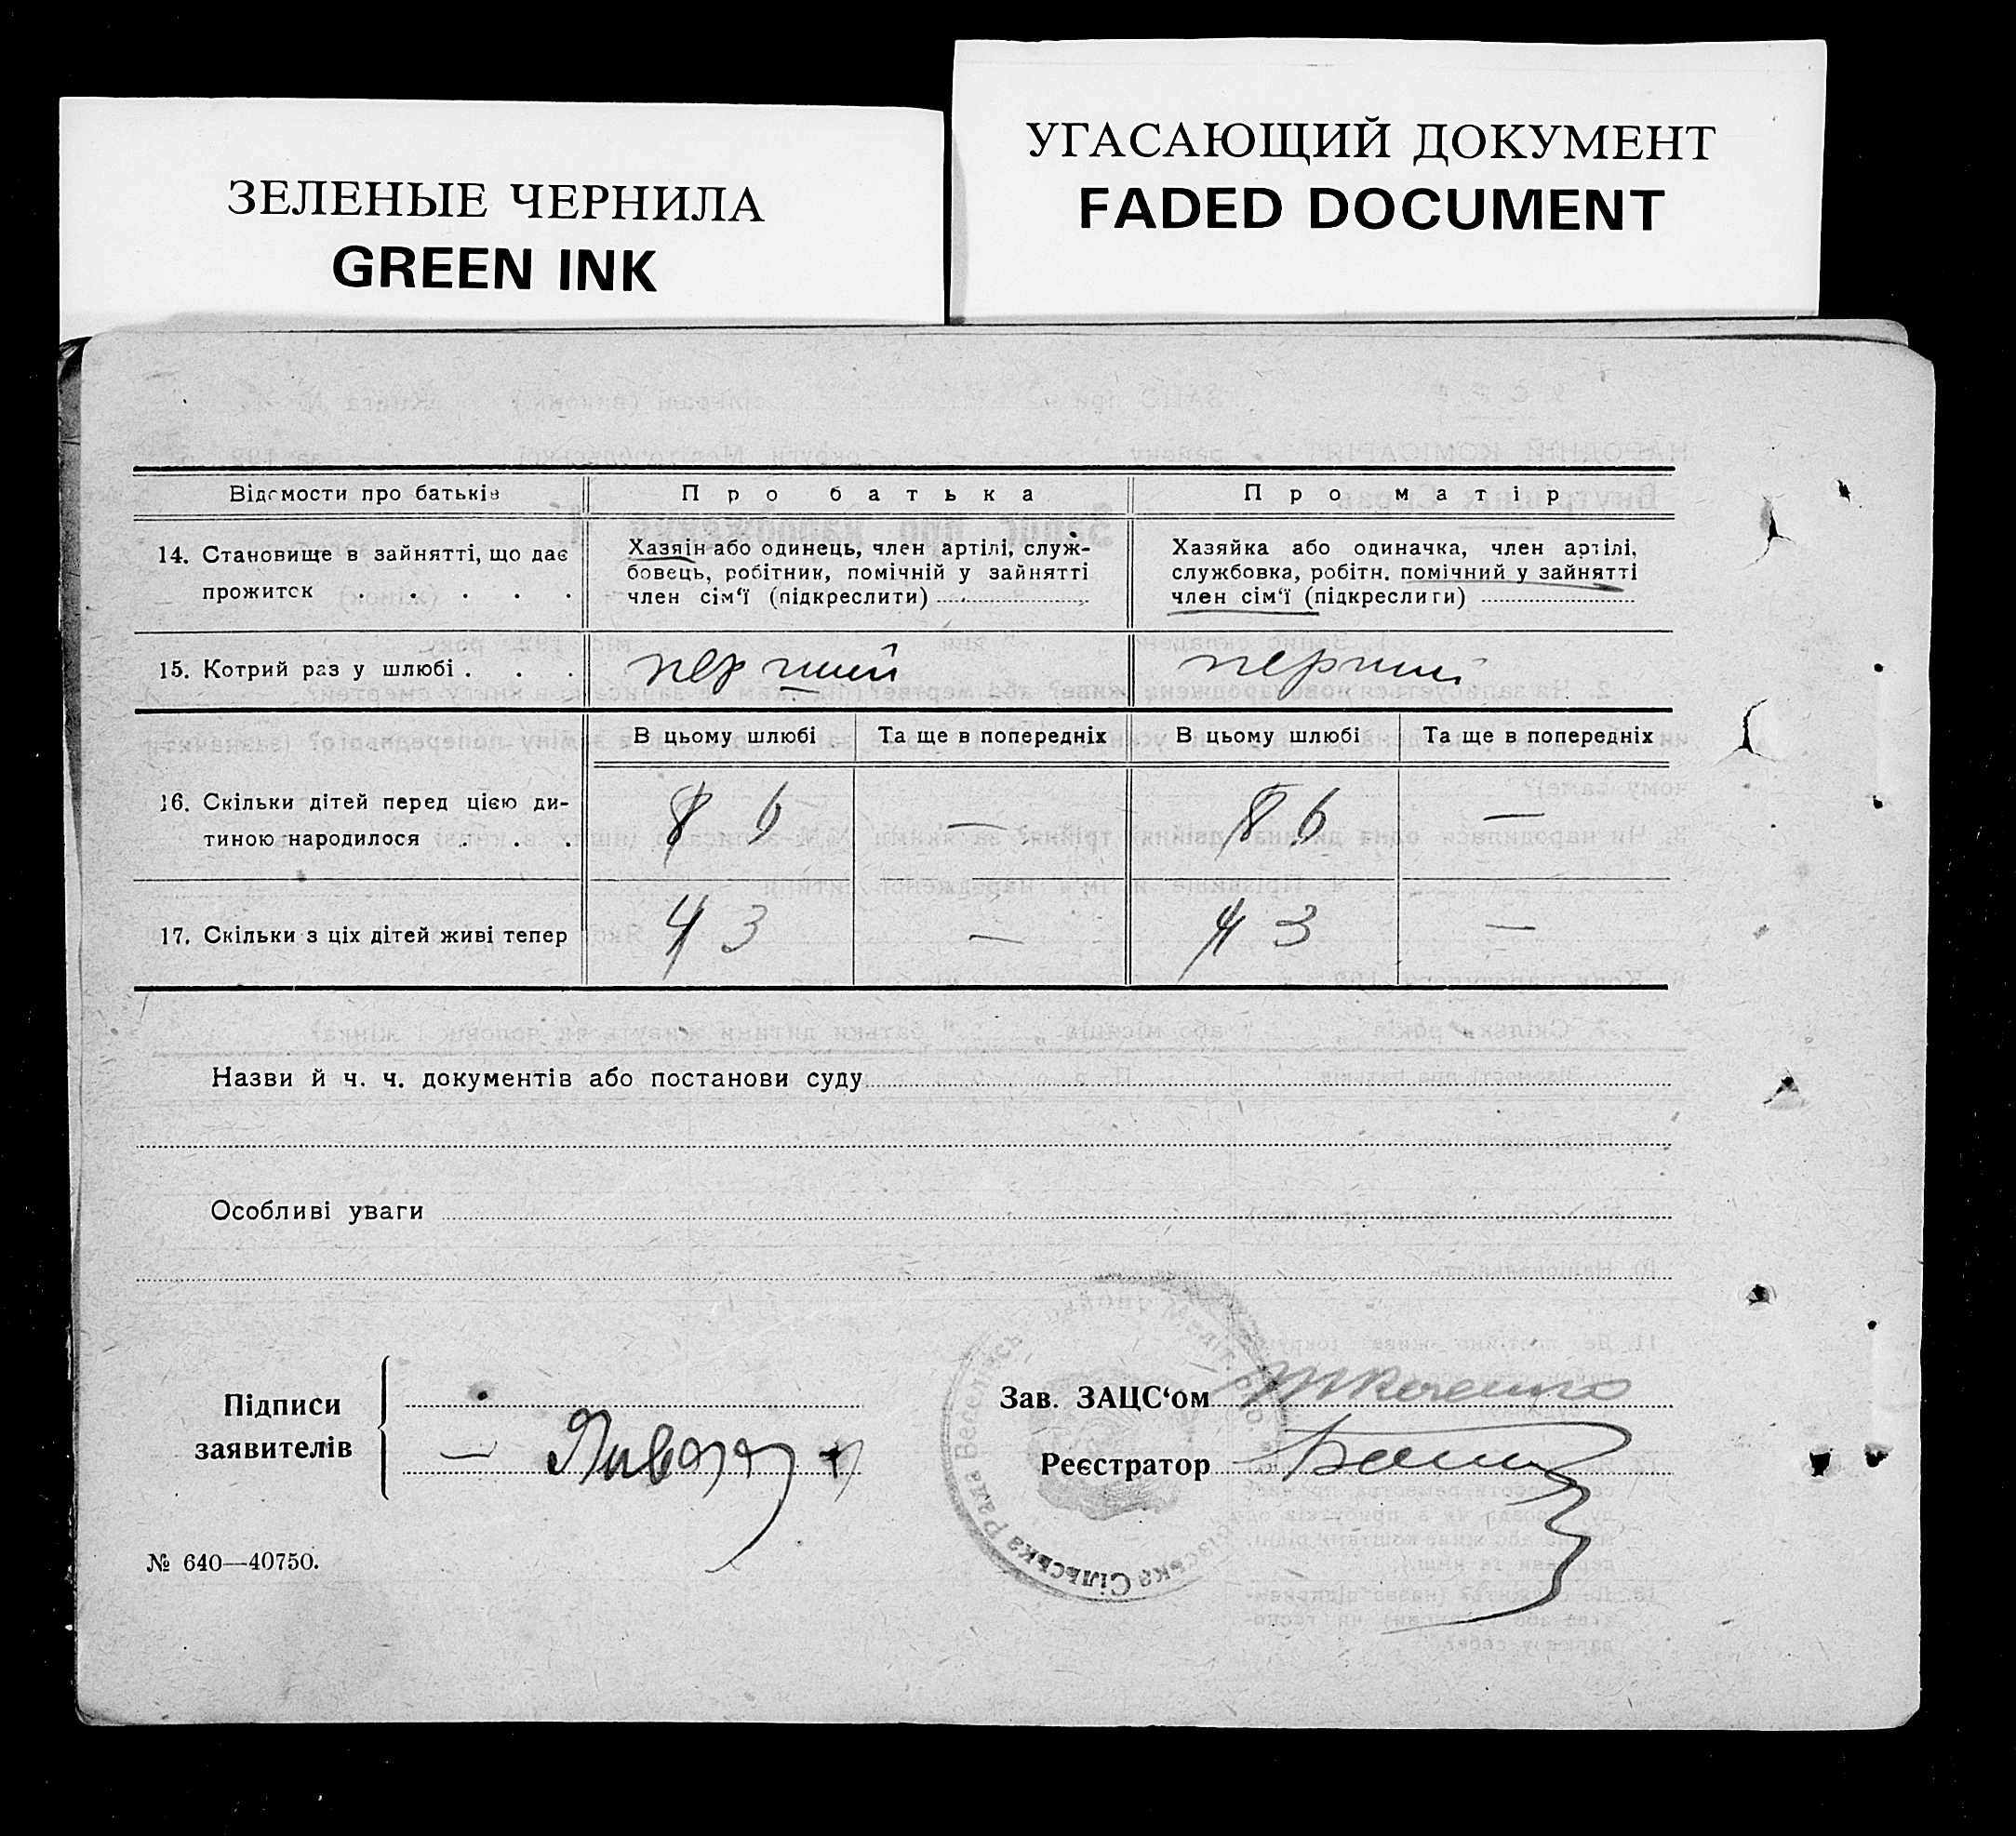 ЗЕЛЕНЫЕ ЧЕРНИЛА
GREEN INK
УГАСАЮЩИЙ ДОКУМЕНТ
FADED DOCUMENT
Відомости про батьків
Про батька
Про матір
14. Становище в зайнятті, що дає
прожиток . . . . .
Хазяїн або одинець, член артілі, служ-
бовець, робітник, помічній у зайнятті
член сім‘ї (підкреслити)
Хазяйка або одиначка, член артілі,
службовка, робітн. помічний у зайнятті
член сім‘ї (підкреслити)
15. Котрий раз у шлюбі . . .
перший
перший
В цьому шлюбі
Та ще в попередніх
В цьому шлюбі
Та ще в попередніх
16. Скільки дітей перед цією ди-
тиною народилося . . .
8 6
—
8 6
—
17. Скільки з ціх дітей живі тепер
4 3
—
4 3
—
Назви й ч. ч. документів або постанови суду
Особливі уваги
Підписи
заявителів
Зав. ЗАЦС‘ом
Реєстратор
Сільська Рада
№ 640—40750.